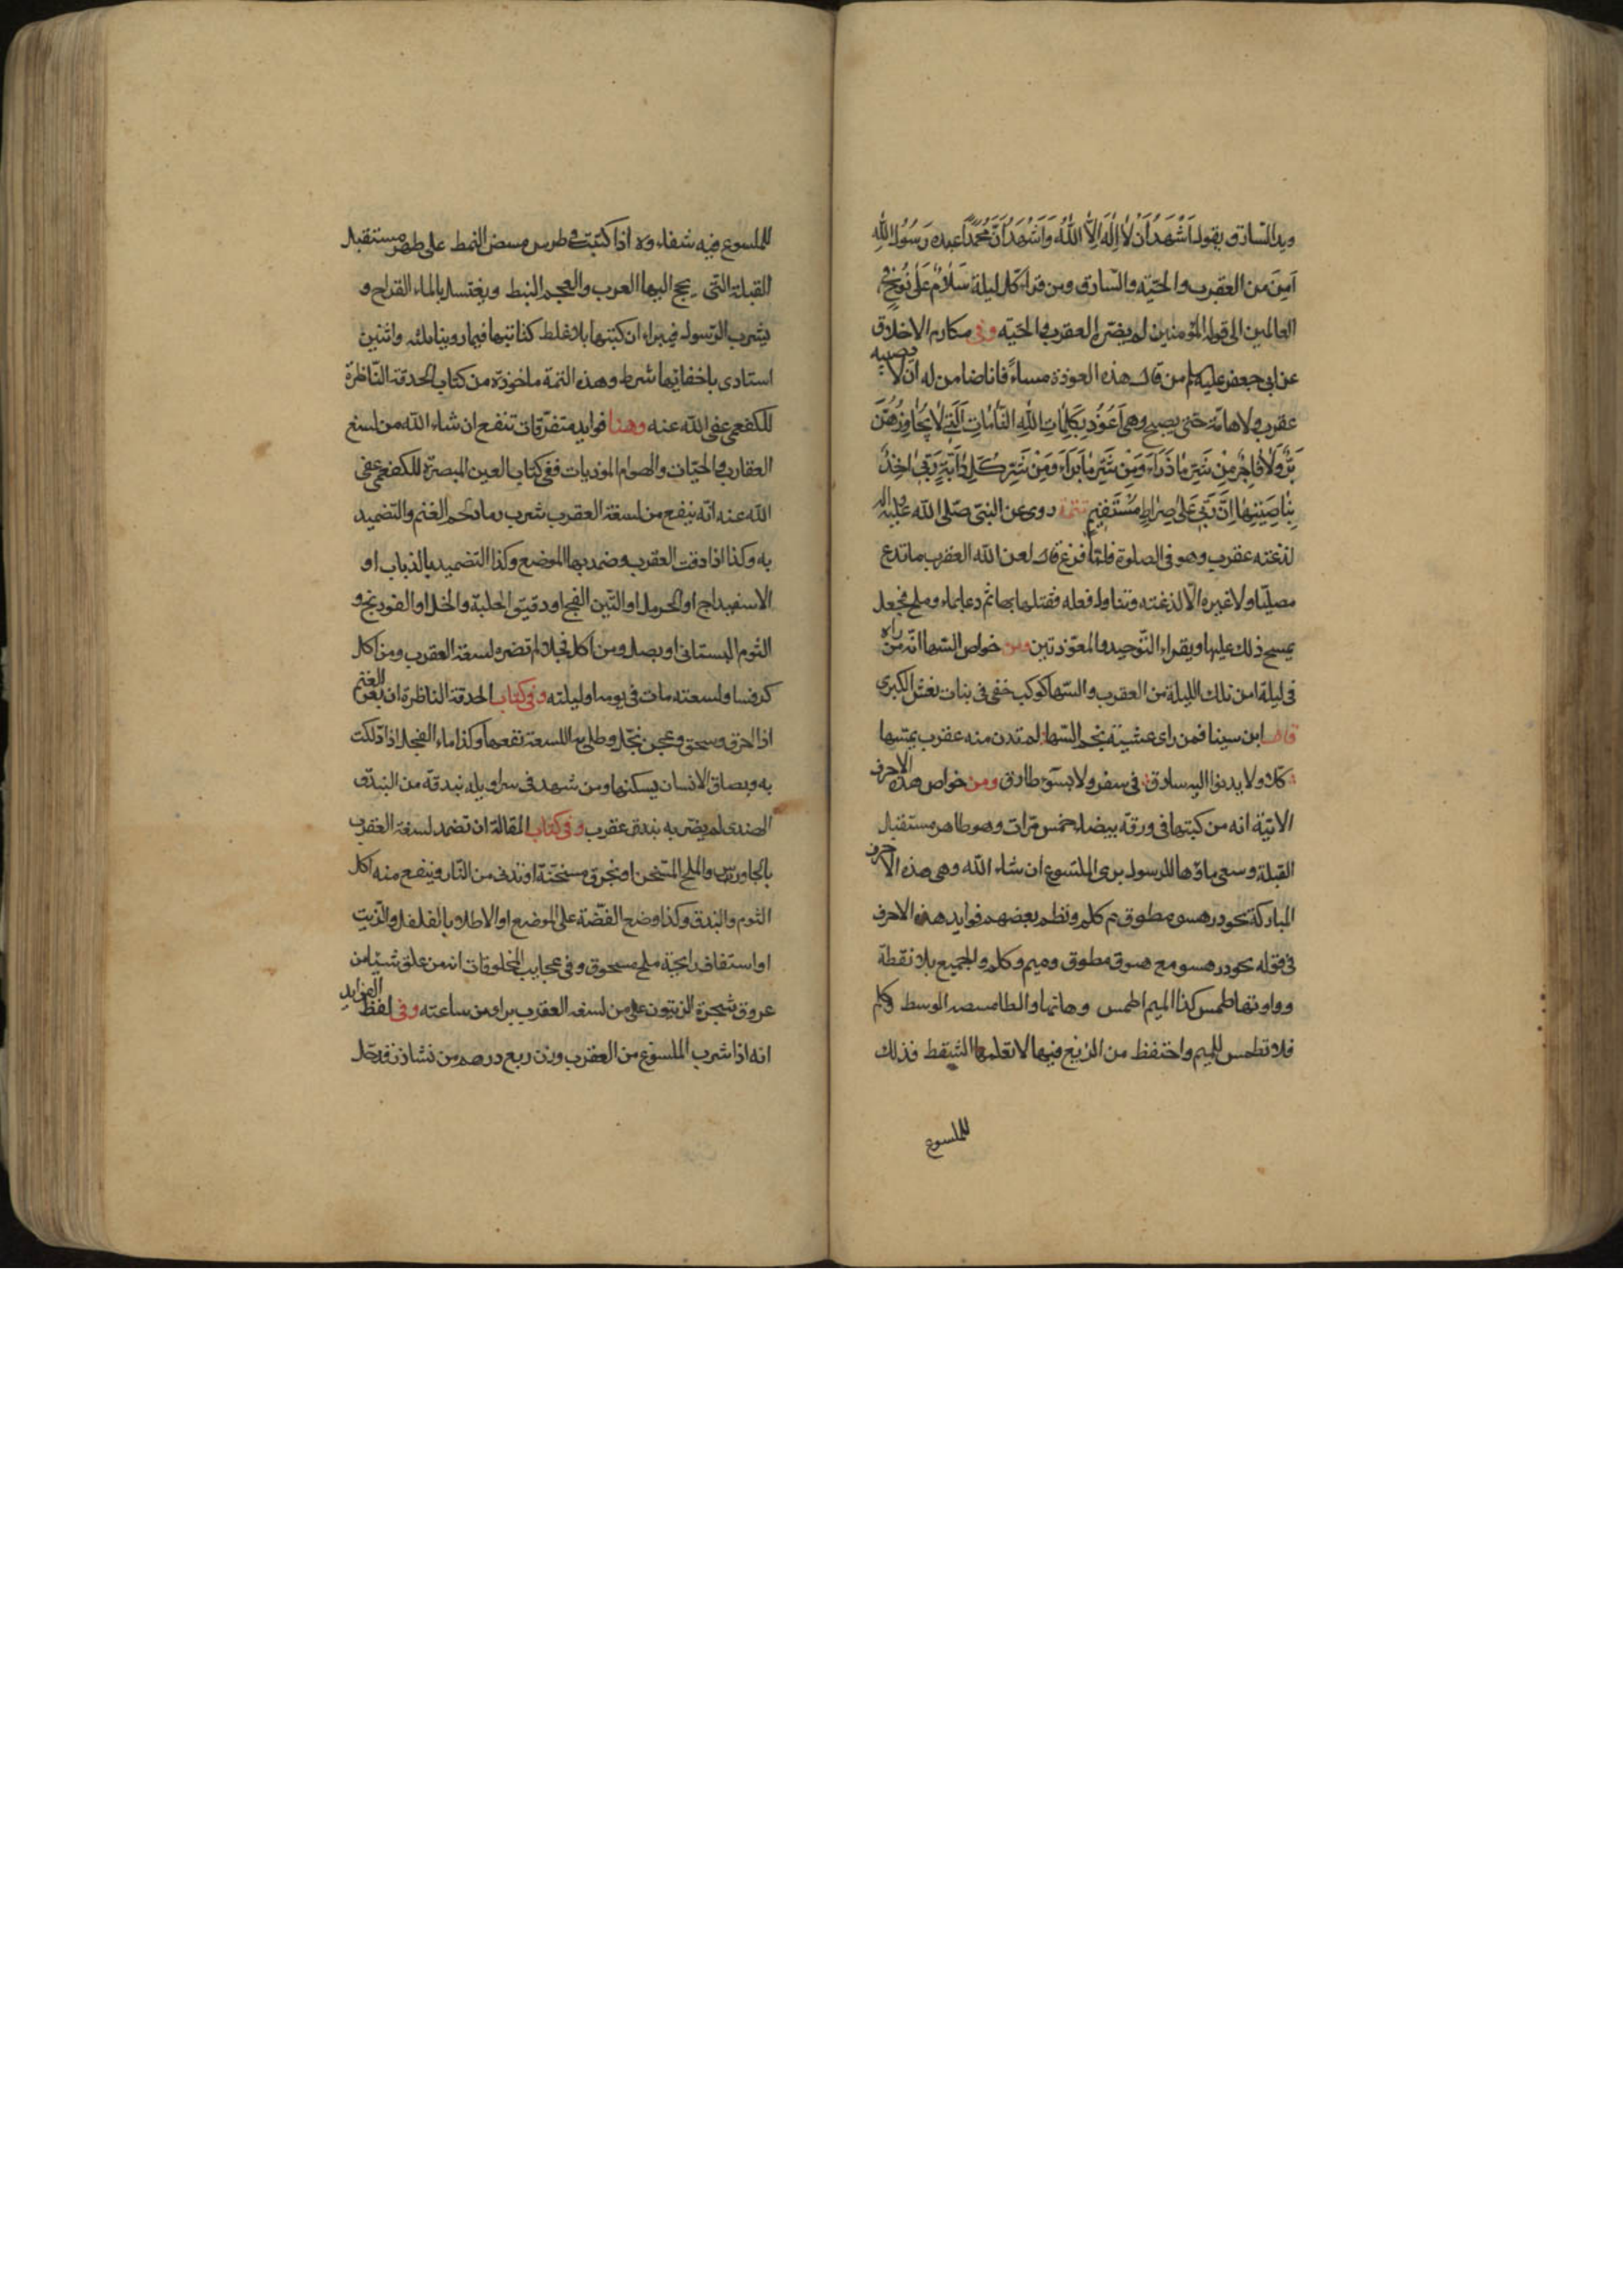 ويد السارق بقول اَشْهَدُ اَنْ لاٰ اِلٰهَ اِلاَّ اللهُ وَاَشْهَدُ اَنَّ مُحَمَّداً عبده رَسُولُ اللهِ
اَمِنَ من العقرب والحيّة والسّارق ومن قراء كل ليلة سَلاٰمٌ عَلىٰ نُوحٍ فى
العالمين الى قوله المؤمنين لم يضرّه العقرب والحيّة وفى مكارم الاخلاق
عن ابى جعفر عليه من قال هذه العوذة مساءً فانا ضامن له ان لا يصيبه
عقرب ولا هامّة حتى يصبح وهى اَعُوذُ بِكَلِمٰاتِ اللهِ التّٰامّٰاتِ الَّتى لاٰ يُجٰاوِزُهُنَّ
بَرٌّ وَلاٰ فٰاجِرٌ مِنْ شَرِّ مٰا ذَرَاءَ وَمِنْ شَرِّ مٰا بَرَاءَ وَمِنْ شَرِّ كُلِّ دٰابَّةٍ رَبّى اٰخِذٌ
بِنٰاصِيَتِهٰا اِنَّ رَبّى عَلىٰ صِرٰاطٍ مُسْتَقيمٍ تتمة روى عن النبىّ صلى الله عليه واله
لذغته عقرب وهو فى الصلوة فلمّا فرغ قال لعن الله العقرب ما تدع
مصلّيا ولا غيره الّا لذغته وتناول فعله فقتلها بها ثم دعا بماء وملح فجعل
يمسح ذلك عليها ويقراء التّوحيد والمعوّذتين ومن خواص السّها انّه من راه
فى ليلة امن تلك الليلة من العقرب والسّها كوكب خفى فى بنات نعش الكبرى
قال ابن سينا فمن راى عشيّة نجم السّها لم تدن منه عقرب يمسّها
كلّا ولا يدنوا اليه سارق فى سفر ولا بسوٓء طارق ومن خواص هذه الاحرف
الاتيّة انه من كتبها فى ورقة بيضاء خمس مرّات وهو طاهر مستقبل
القبلة وسعى ماؤها للرسول برى الملسوع ان شاء الله وهى هذه الاحرف
المباركة بحودر هسو مطوق م كلم ونظم بعضهم فوايد هذه الاحرف
فى قوله بحودر هسو مع هسوق مطوق وميم وكلم والجميع بلا نقطة
وواوتها طمس كذا الميم اطمس وهاتها والطا الوسط وكم
فلا تطمس للميم واحتفظ من الزيغ فيها لا تعلمها النقط فذلك
للملسوع
للملسوع فيه شفاءوه اذا كتبت فى طرس مبيض النمط على طهر مستقبل
القبلة التى يحج اليها العرب والعجم النبط ويغتسل بالماء القراح و
يشرب الرّسول فيبراء ان كتبتها بلا غلط كتابتها فيما روينا مائه واثنين
استادى باخفائها شرط وهذه التتمة ماخوذة من كتاب الحدقة النّاظرة
للكفعمى عفى الله عنه وهنا فوايد متفرّقات تنفع ان شاء الله من لسع
العقارب والحيّات والهوام الموذيات ففى كتاب العين المبصرة للكفعمى عفى
الله عنه انّه ينفع من لسعة العقرب شرب رماد لحم الغنم والتضميد
به وكذا اذا دقت العقرب وضمد بها الموضع وكذا التضميد بالذباب او
الاسفيداج او الحرمل او التّين الفج او دقيق الحلبة والخل او الفودنج و
الثوم البستانى او بصل ومن اكل فجلا لم تضره لسعة العقرب ومن اكل
كرفسا ولسعته مات فى يومه او ليلته وفى كتاب الحدقة الناظرة ان بعر الغنم
اذا احرق وسحق وعجن بخلّ وطلى به اللسعة نفعها وكذا ماء الفجل اذا دلكت
به وبصاق الانسان يسكنها ومن شهد فى سراويله بندقه من البندق
الهندى لم يضر به عقرب وفى كتاب المقالة ان تضمد لسعة العقرب
بالجاورس والملح المسّخن او بخرق مسخّنة او تدنى من النّار وينفع منه اكل
الثوم والبندق وكذا وضع الفضّة على الموضع او الاطلاء بالفلفل والزّيت
او استفاف رايحة ملح مسحوق وفى عجايب المخلوقات انه من علق شيئا من
عروق شجرة الزيتون على من لسعه العقرب براء من ساعته وفى لفظ الفوايد
انه اذا شرب الملسوع من العقرب وزن ربع درهم من نشاذر فى خل